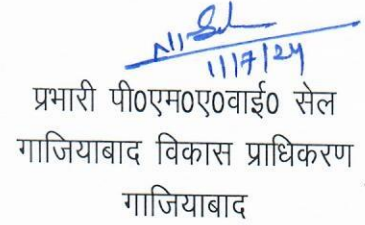 11/7/24
प्रभारी पी0एम0ए0वाई0 सेल
गाजियाबाद विकास प्राधिकरण
गाजियाबाद